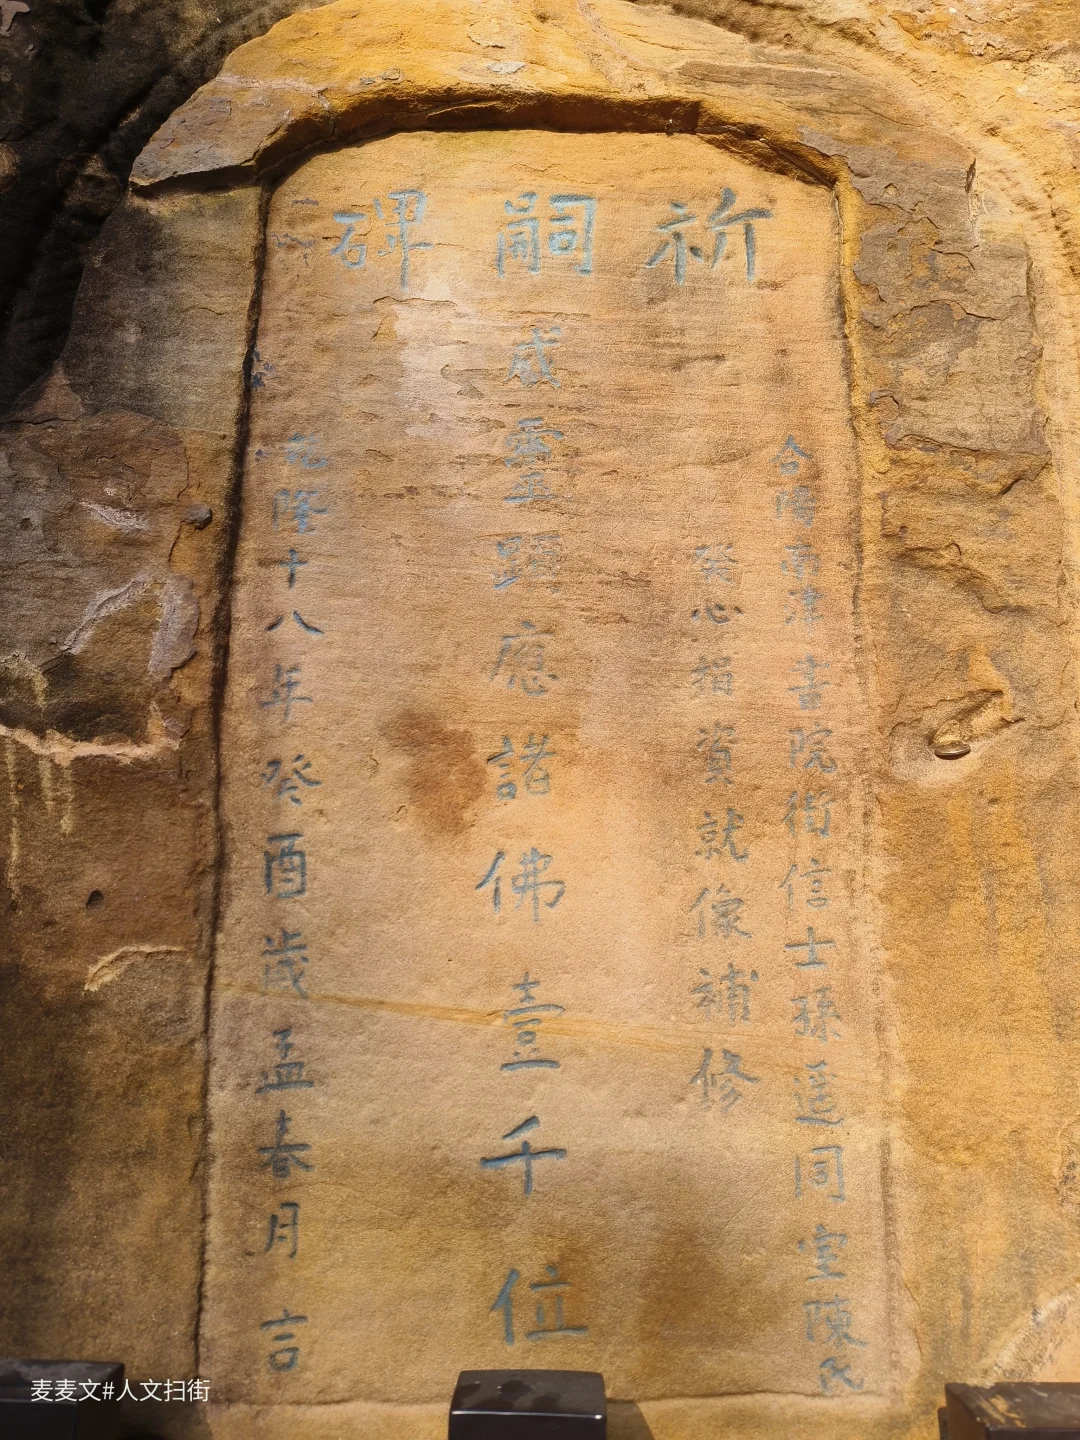 祈嗣碑
合陽南津書院街信士孫 同室陳氏
癸心捐資就像補修
咸靈顕應諸佛壹千位
乾隆十八年癸酉歲孟春月吉
麦麦文#人文扫街